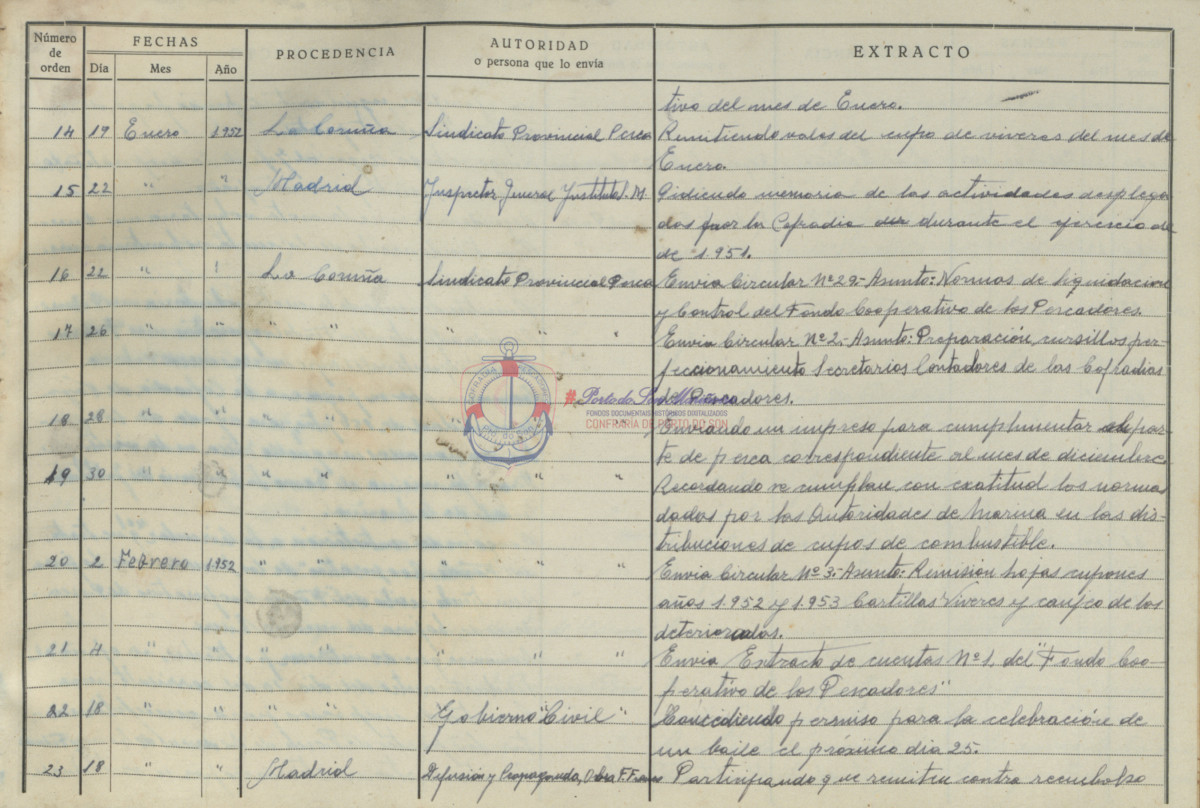 Número de orden FECHAS PROCEDENCIA AUTORIDAD o persona que lo envía EXTRACTO
Día Mes Año
tivo del mes de Enero.
14 19 Enero 1.952 La Coruña Sindicato Provincial Pesca Remitiendo vales del cupo de viveres del mes de
Enero.
15 22 " " Madrid Inspector General Institutos. M. Pidiendo memoria de las actividades desplega
das por la Cofradia durante el ejercicio de
de 1.951.
16 22 " ! La Coruña Sindicato Provincial Pesca Envia Circular Nº 29.- Asunto: Normas de liquidacion
y Control del Fondo Cooperativo de los Pescadores.
17 26 " " " " " " Envia Circular Nº 2.- Asunto: Preparación, cursillos per-
feccionamiento Secretarios Contadores de las Cofradias
de Pescadores.
18 28 " " " " " " Enviando un impreso para cumplimentar el par-
te de pesca correspondiente al mes de diciembre.
19 30 " " " " " " Recordando se cumplan con exatitud las normas
dadas por las Autoridades de Marina en las dis-
tribuciones de cupos de combustible.
20 2 Febrero 1.952 " " " " Envia Circular Nº 3.- Asunto: Remisión hojas cupones
años 1.952 y 1.953 Cartillas Viveres y canje de las
deterioradas.
21 4 " " " " " " Envia Extracto de cuentas Nº 1, del "Fondo Coo-
perativo de los Pescadores"
22 18 " " " " Gobierno Civil Concediendo permiso para la celebración de
un baile el próximo dia 25.
23 18 " " Madrid Difusión y Propaganda, Obra F. Participando que remiten contra reembolso
CONFRADIA PESCADORES
PORTO DO SON
#Porto do Son
FONDOS DOCUMENTAIS HISTÓRICOS DIXITALIZADOS
CONFRARÍA DE PORTO DO SON